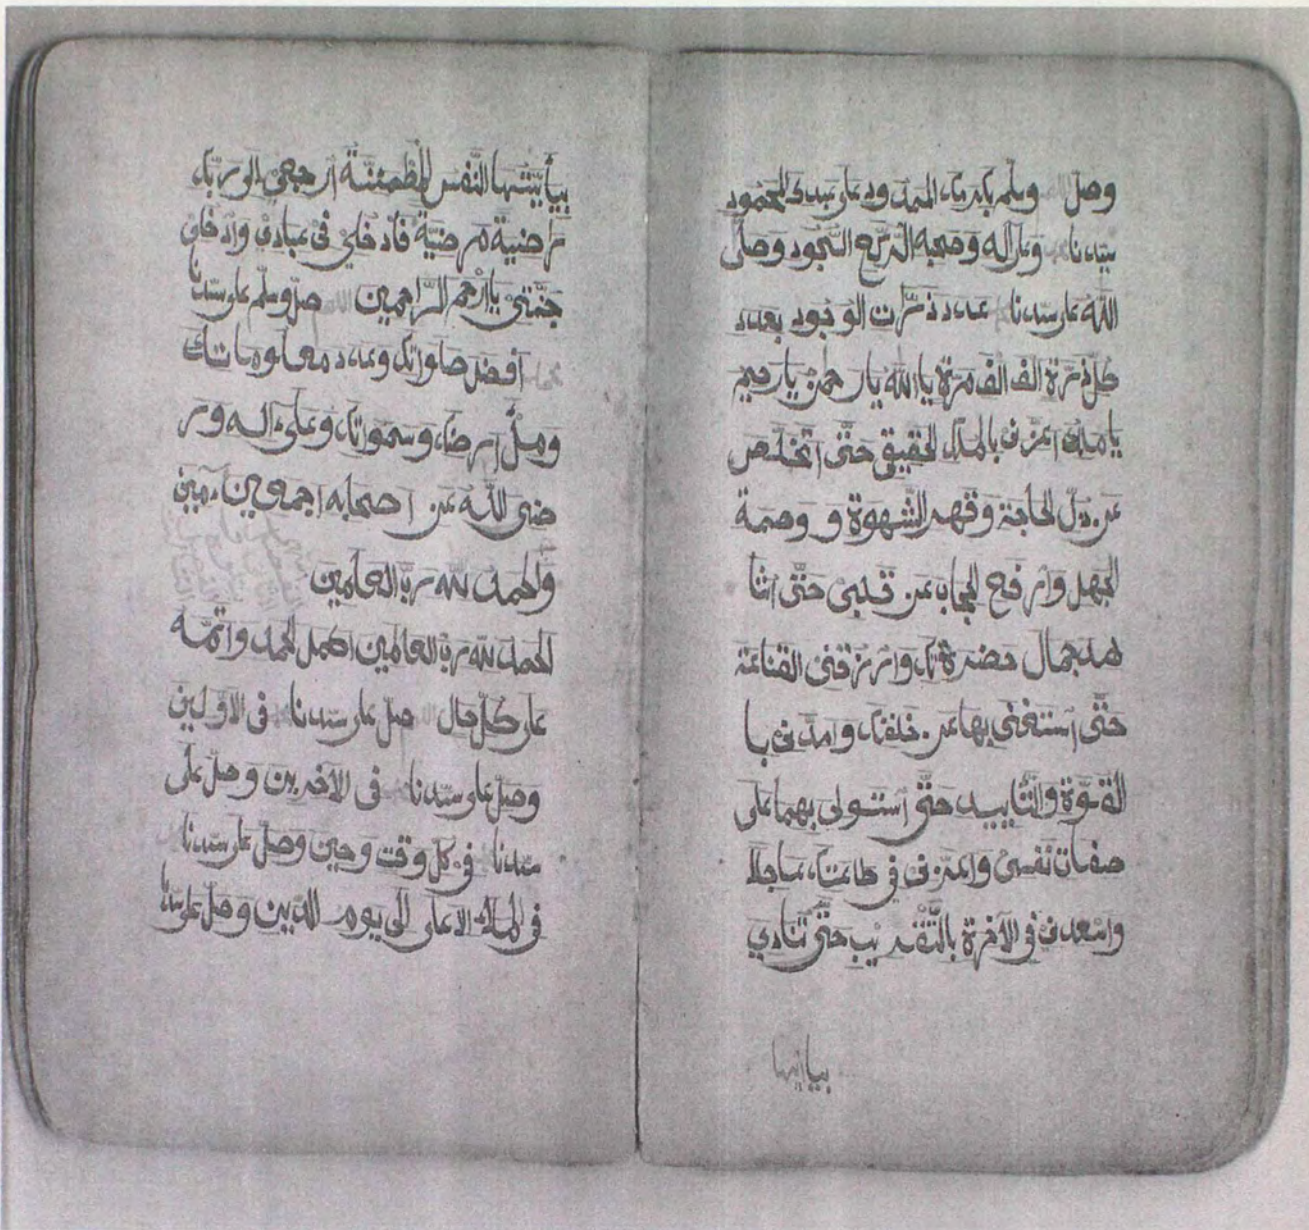 وصل وسلم بكرمك الممدود على عبدك المحمود
سيدنا وعلى اله وصحبه الركع السجود وصلى
الله على سيدنا عدد ذرات الوجود بعدد
كل ذرة الف الف مرة يا الله يا رحمن يا رحيم
يا ملك اعزني بالملك الحقيقي حتى اتخلص
عن ذل الحاجة وقهر الشهوة و وصمة
الجهل وارفع الحجاب عن قلبي حتى اشا
هد جمال حضرتك وارزقني القناعة
حتى استغني بها عن خلقك وامدني با
القوة والتأييد حتى استولى بهما على
صفات نفسي واعزني في طاعتك عاجلا
واسعدني في الاخرة بالتقريب حتى تنادي
بياايتها
بيأيتها النفس المطمئنة ارجعي الى ربك
راضية مرضية فادخلي في عبادي وادخلي
جنتي يا ارحم الراحمين صل وسلم على سيدنا
افضل صلواتك وعدد معلوماتك
وملأ ارضك وسمواتك وعلى ءاله ور
ضى الله عن اصحابه اجمعين ءامين
والحمد لله رب العالمين
الحمد لله رب العالمين اكمل الحمد واتمه
على كل حال صل على سيدنا في الاولين
وصل على سيدنا في الاخرين وصل على
سيدنا في كل وقت وحين وصل على سيدنا
في الملاء الاعلى الى يوم الدين وصل على سيدنا